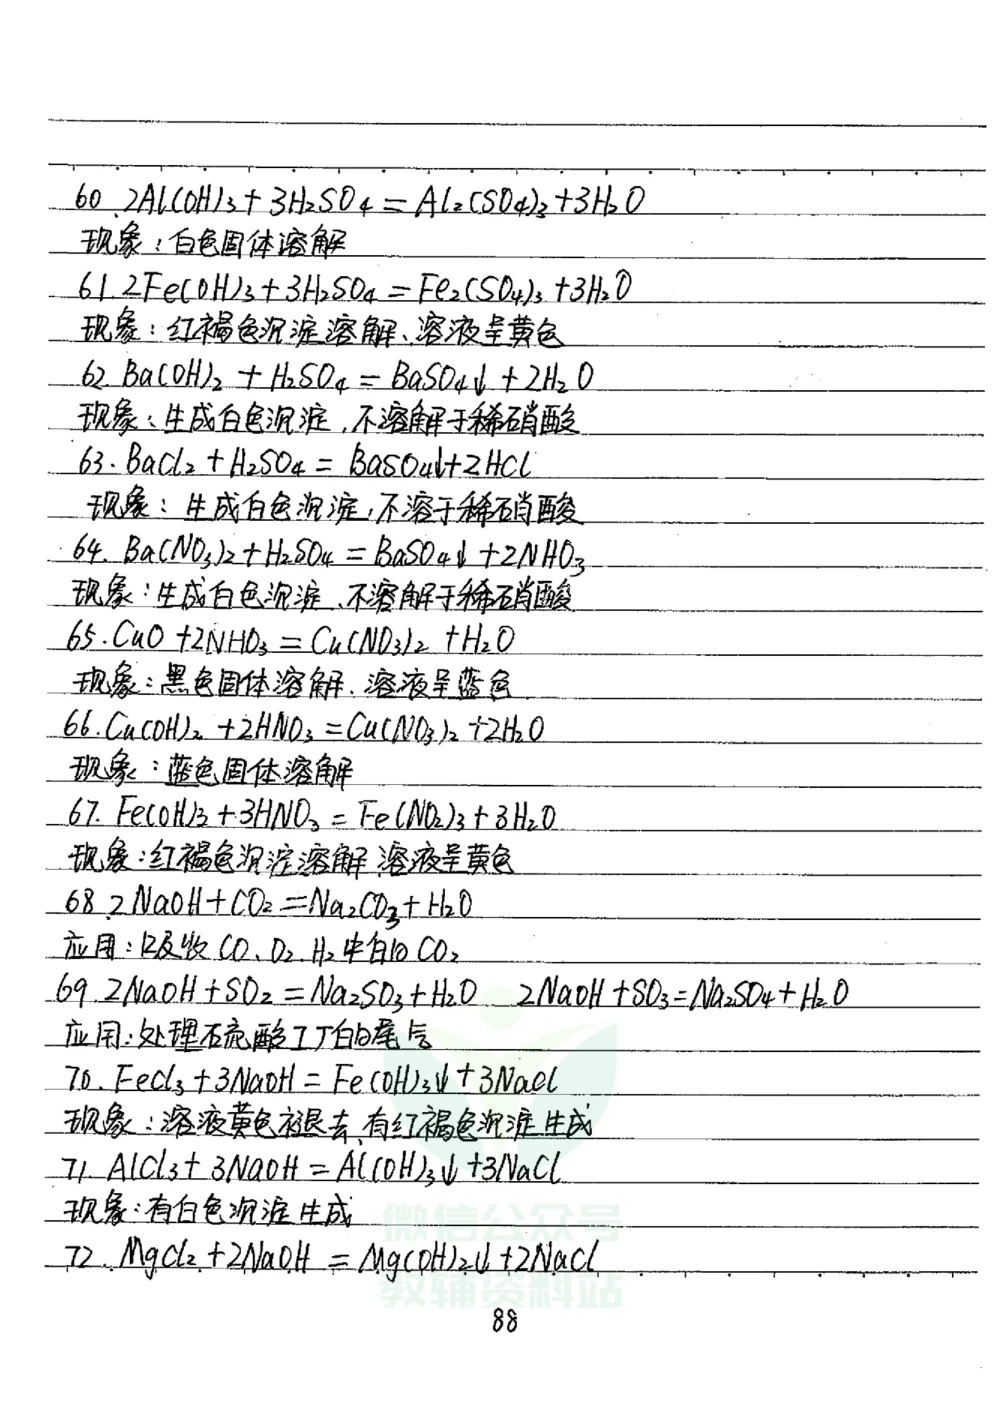 60.2Al(OH)3+3H2SO4=Al2(SO4)3+3H2O
现象:白色固体溶解
61.2Fe(OH)3+3H2SO4=Fe2(SO4)3+3H2O
现象:红褐色沉淀溶解、溶液呈黄色
62.Ba(OH)2+H2SO4=BaSO4↓+2H2O
现象:生成白色沉淀,不溶解于稀硝酸
63.BaCl2+H2SO4=BaSO4↓+2HCl
现象:生成白色沉淀,不溶于稀硝酸
64.Ba(NO3)2+H2SO4=BaSO4↓+2NHO3
现象:生成白色沉淀,不溶解于稀硝酸
65.CuO+2NHO3=Cu(NO3)2+H2O
现象:黑色固体溶解、溶液呈蓝色
66.Cu(OH)2+2HNO3=Cu(NO3)2+2H2O
现象:蓝色固体溶解
67.Fe(OH)3+3HNO3=Fe(NO2)3+3H2O
现象:红褐色沉淀溶解 溶液呈黄色
68.2NaOH+CO2=Na2CO3+H2O
应用:吸收CO、O2、H2中的CO2
69.2NaOH+SO2=Na2SO3+H2O 2NaOH+SO3=Na2SO4+H2O
应用:处理硫酸工厂的尾气
70.FeCl3+3NaOH=Fe(OH)3↓+3NaCl
现象:溶液黄色褪去、有红褐色沉淀生成
71.AlCl3+3NaOH=Al(OH)3↓+3NaCl
现象:有白色沉淀生成
72.MgCl2+2NaOH=Mg(OH)2↓+2NaCl
微信公众号
教辅资料站
88